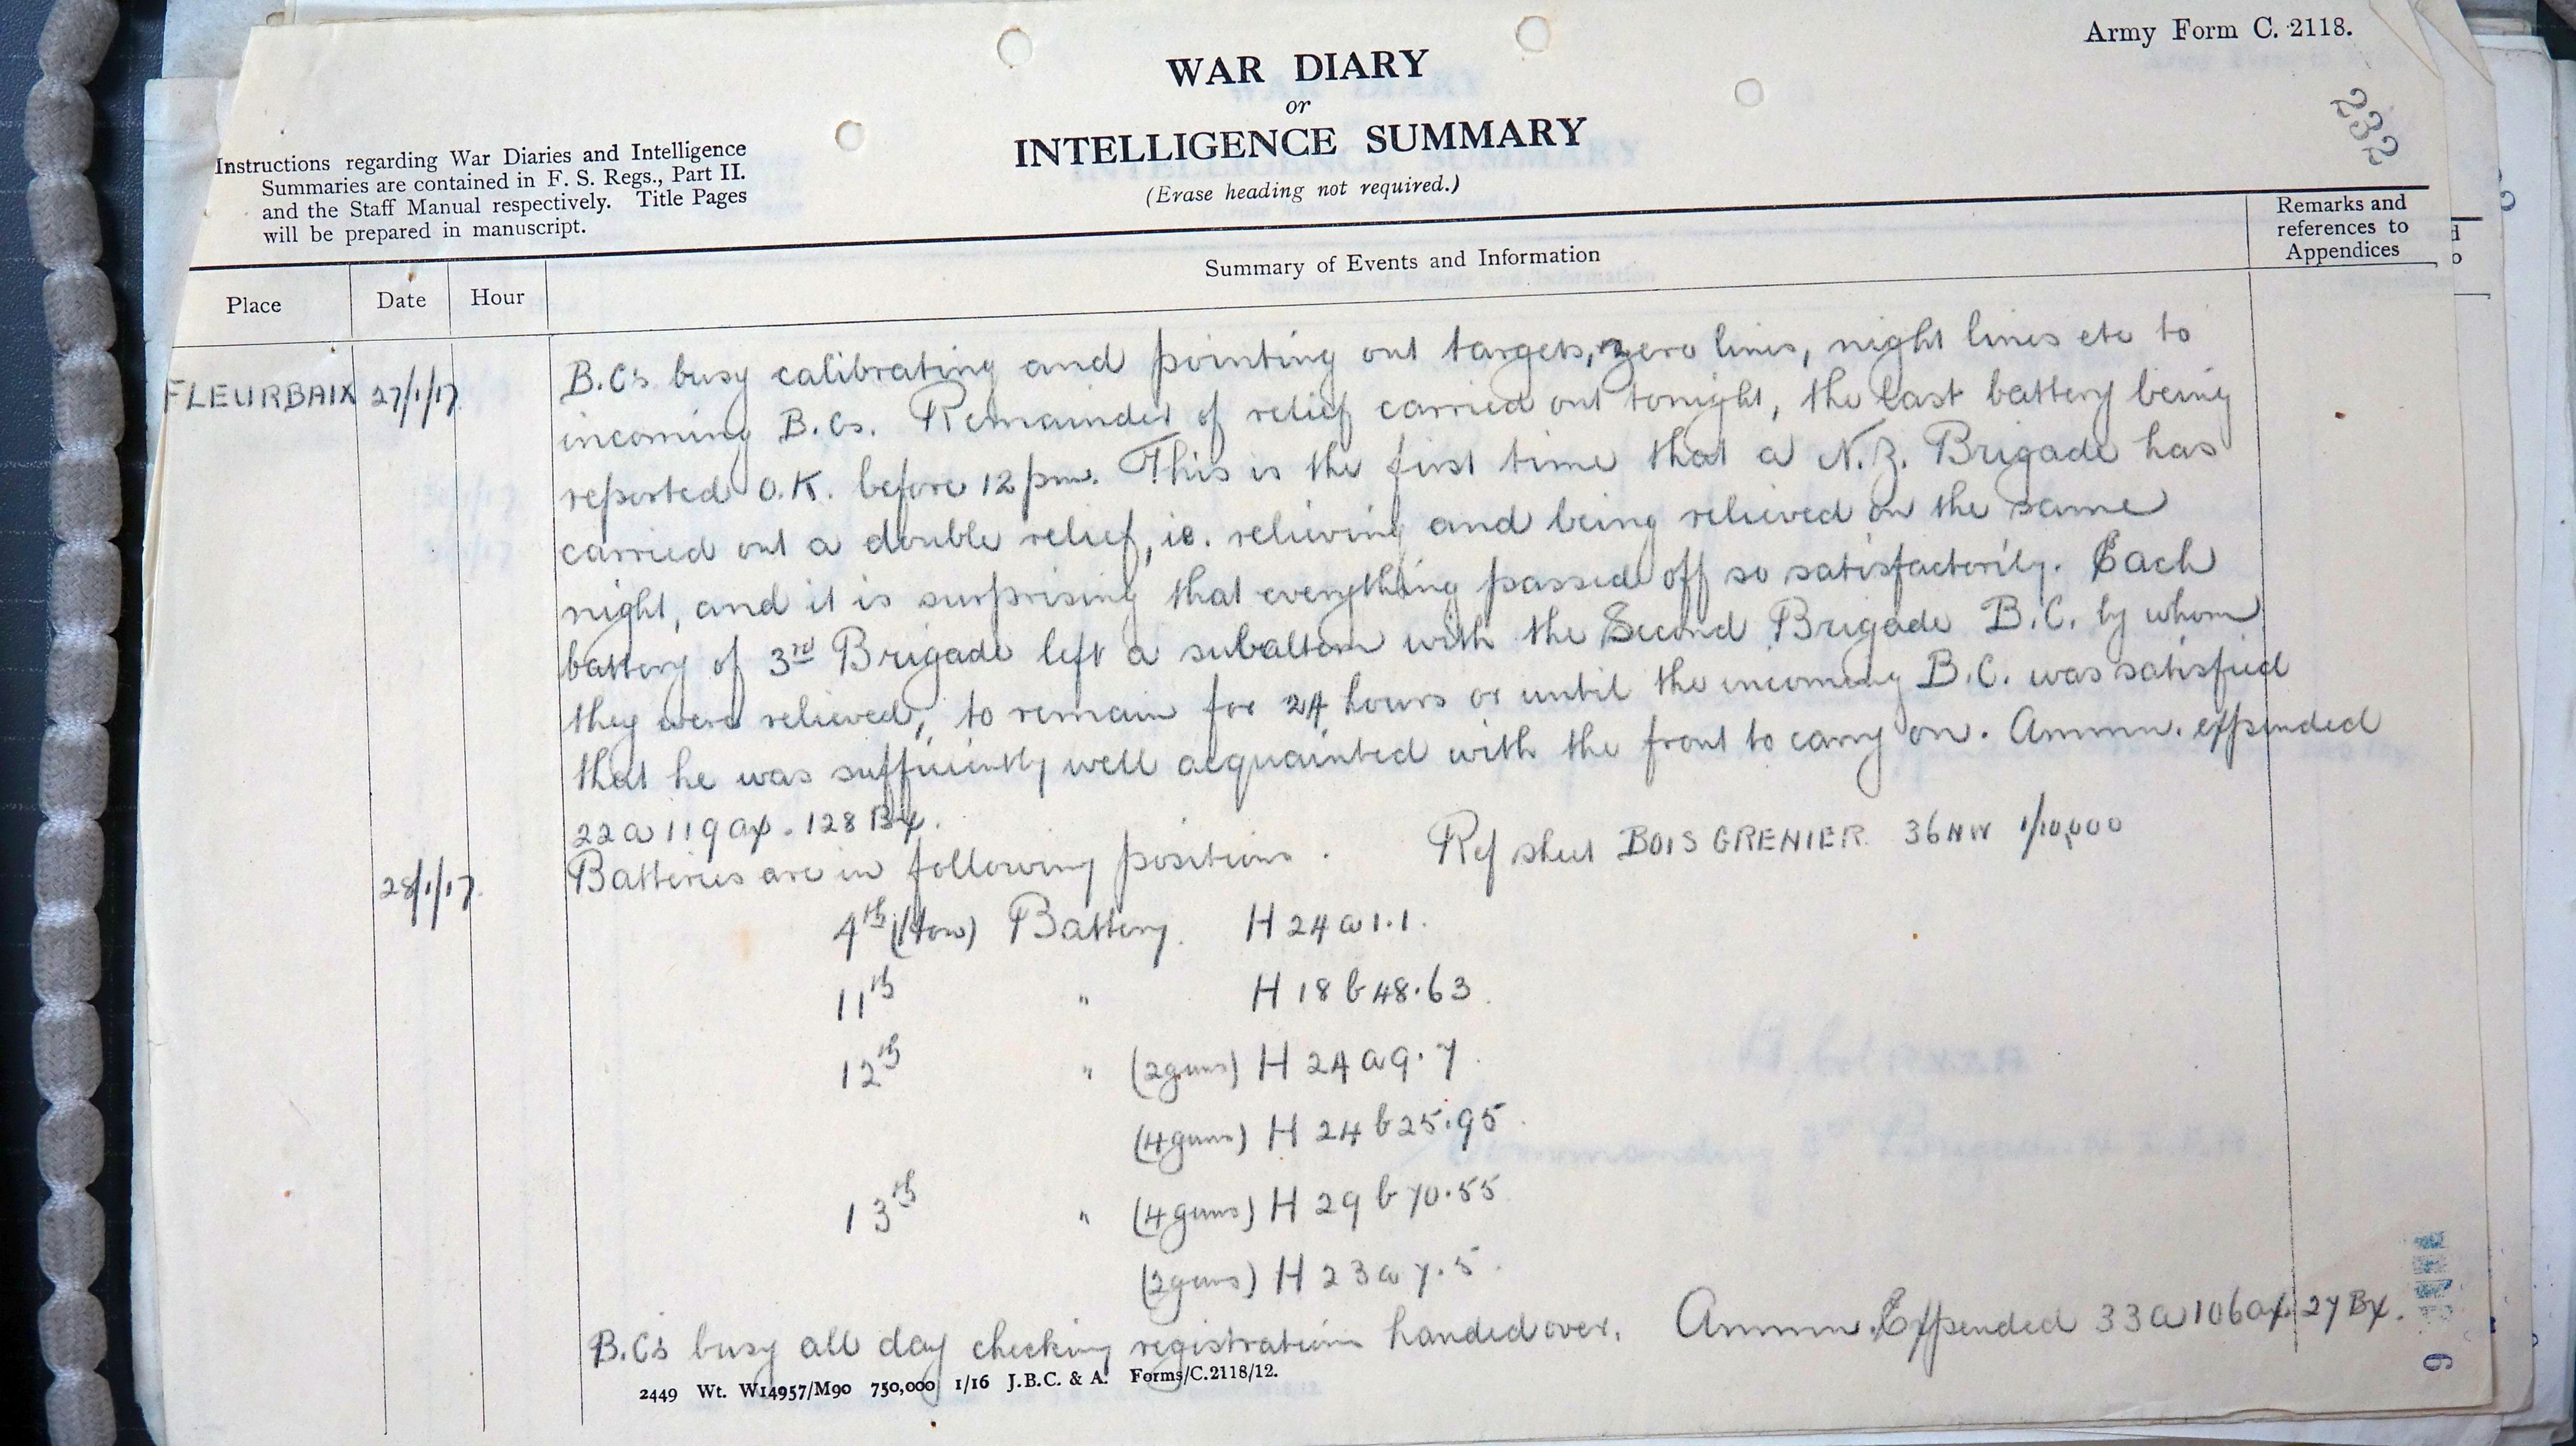 Army Form C. 2118.
WAR DIARY
or
INTELLIGENCE SUMMARY
(Erase heading not required.)
232
Instructions regarding War Diaries and Intelligence
Summaries are contained in F. S. Regs., Part II.
and the Staff Manual respectively. Title Pages
will be prepared in manuscript.
Place
Date
Hour
Summary of Events and Information
Remarks and
references to
Appendices
FLEURBAIX 27/1/17 B.Cs busy calibrating and pointing out targets, zero lines, night lines etc to
incoming B.Cs. Remainder of relief carried out tonight, the last battery being
reported O.K. before 12 pm. This is the first time that a N.Z. Brigade has
carried out a double relief, ie. relieving and being relieved on the same
night, and it is surprising that everything passed off so satisfactorily. Each
battery of 3rd Brigade left a subaltern with the Second Brigade B.C. by whom
they were relieved, to remain for 24 hours or until the incoming B.C. was satisfied
that he was sufficiently well acquainted with the front to carry on. Ammn. expended
22 a 119 ax. 128 Bx.
28/1/17. Batteries are in following positions. Ref sheet BOIS GRENIER 36NW 1/10,000
4th (How) Battery. H 24 a 1.1.
11th " H 18 b 48.63.
12th " (2guns) H 24 a 9.7.
(4guns) H 24 b 25.95.
13th " (4guns) H 29 b 70.55
(2guns) H 23 a 7.5.
B.Cs busy all day checking registrations handed over. Ammn. Expended 33 a 106 ax. 27 Bx.
2449 Wt. W14957/M90 750,000 1/16 J.B.C. & A. Forms/C.2118/12.